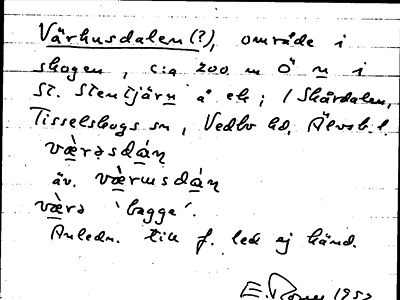 Värhusdalen(?), område i
skogen, c:a 200 m Ö n i
St. Stentjärn å ek; i Skårdalen,
Tisselskogs sn, Vedbo hd, Älvsb. l.
væ̀rəsdán
äv. væ̀rusdán
væ̀rə 'bagge'.
Anledn. till f. led ej känd.
E. 1952